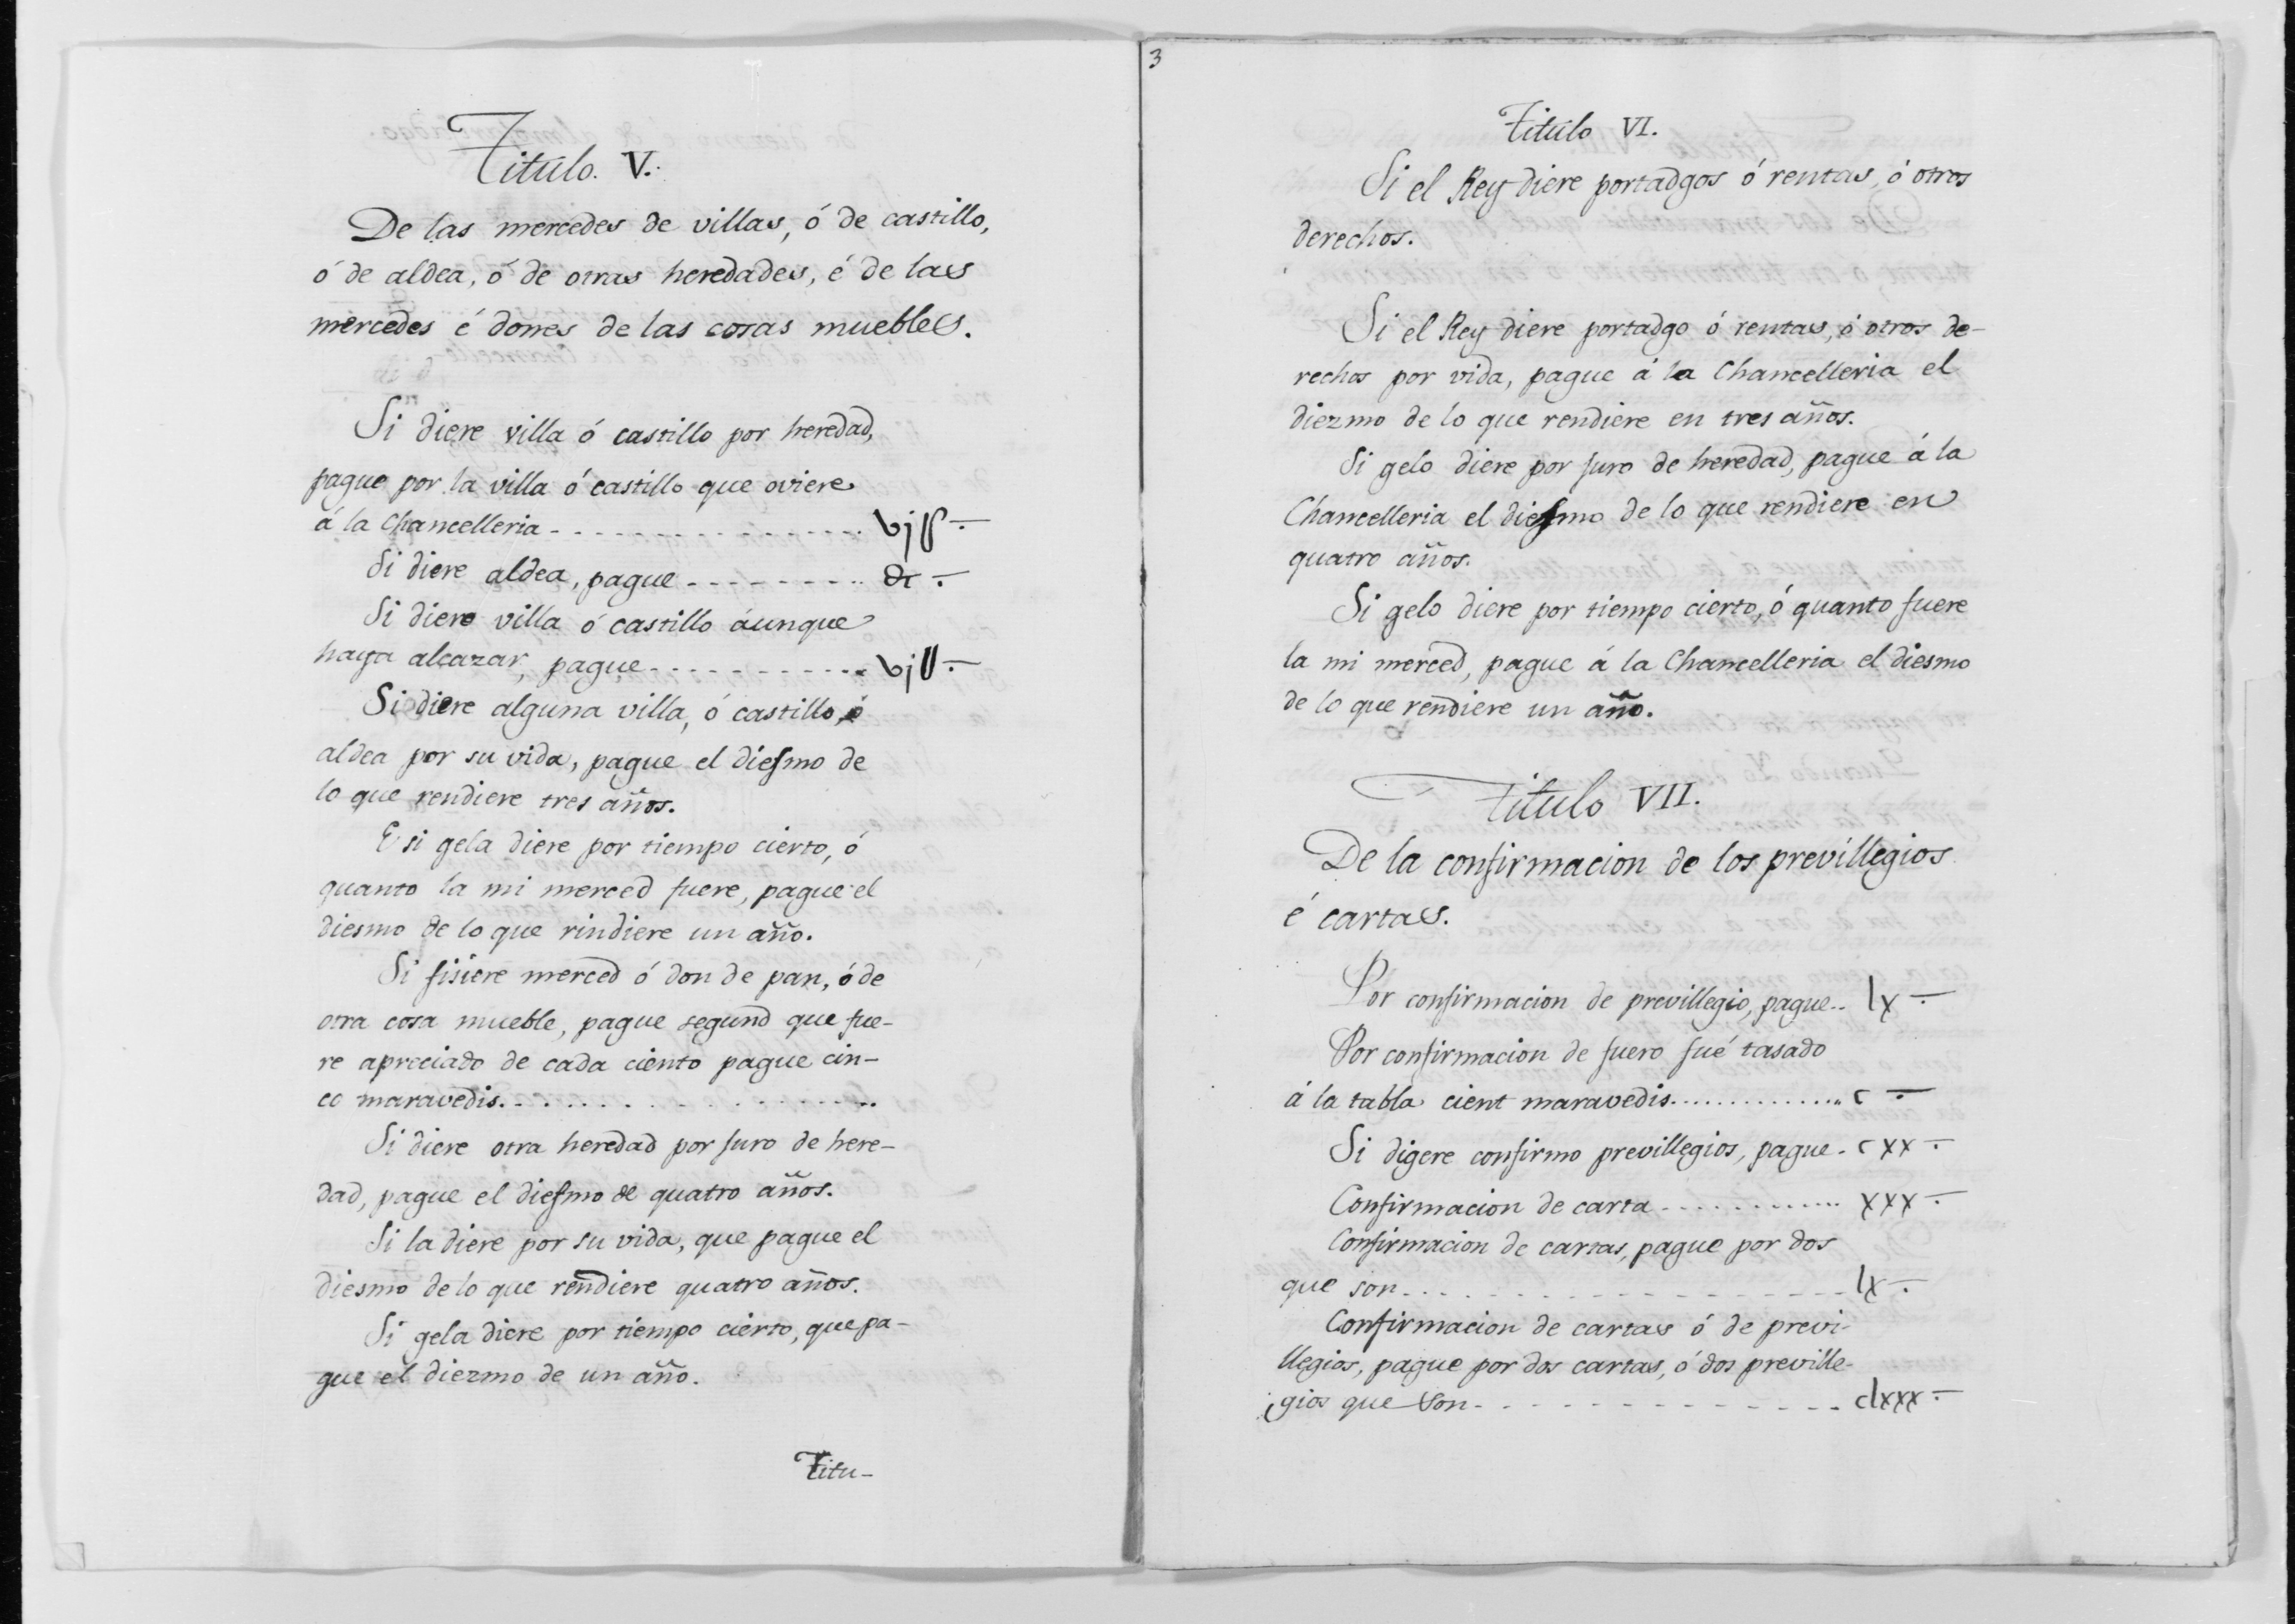 Titulo. V.
De las mercedes de villas, ó de castillo,
ó de aldea, ó de otras heredades, é de las
mercedes é dones de las cosas muebles.
Si diere villa ó castillo por heredad,
pague por la villa ó castillo que oviere
á la Chancelleria
Si diere aldea, pague
Si diere villa ó castillo áunque
haya alcazar, pague
Si diere alguna villa, ó castillo, ó
aldea por su vida, pague el diesmo de
lo que rendiere tres años.
E si gela diere por tiempo cierto, ó
quanto la mi merced fuere, pague el
diesmo de lo que rindiere un año.
Si fisiere merced ó don de pan, ó de
otra cosa mueble, pague segund que fue-
re apreciado de cada ciento pague cin-
co maravedis.
Si diere otra heredad por juro de here-
dad, pague el diesmo de quatro años.
Si la diere por su vida, que pague el
diesmo de lo que rendiere quatro años.
Si gela diere por tiempo cierto, que pa-
gue el diezmo de un año.
Titu-
3
Titulo VI.
Si el Rey diere portadgos ó rentas, ó otros
derechos.
Si el Rey diere portadgo ó rentas, ó otros de-
rechos por vida, pague á la Chancelleria el
diezmo de lo que rendiere en tres años.
Si gelo diere por juro de heredad, pague á la
Chancelleria el diesmo de lo que rendiere en
quatro años.
Si gelo diere por tiempo cierto, ó quanto fuere
la mi merced, pague á la Chancelleria el diesmo
de lo que rendiere un año.
Titulo VII.
De la confirmacion de los previllegios
é cartas.
Por confirmacion de previllegio, pague.. lx
Por confirmacion de fuero fué tasado
á la tabla cient maravedis.............. c
Si digere confirmo previllegios, pague. cxx
Confirmacion de carta ............. xxx
Confirmacion de cartas, pague por dos
que son.................. lx
Confirmacion de cartas ó de previ-
llegios, pague por dos cartas, ó dos preville-
gios que son.............. clxxx